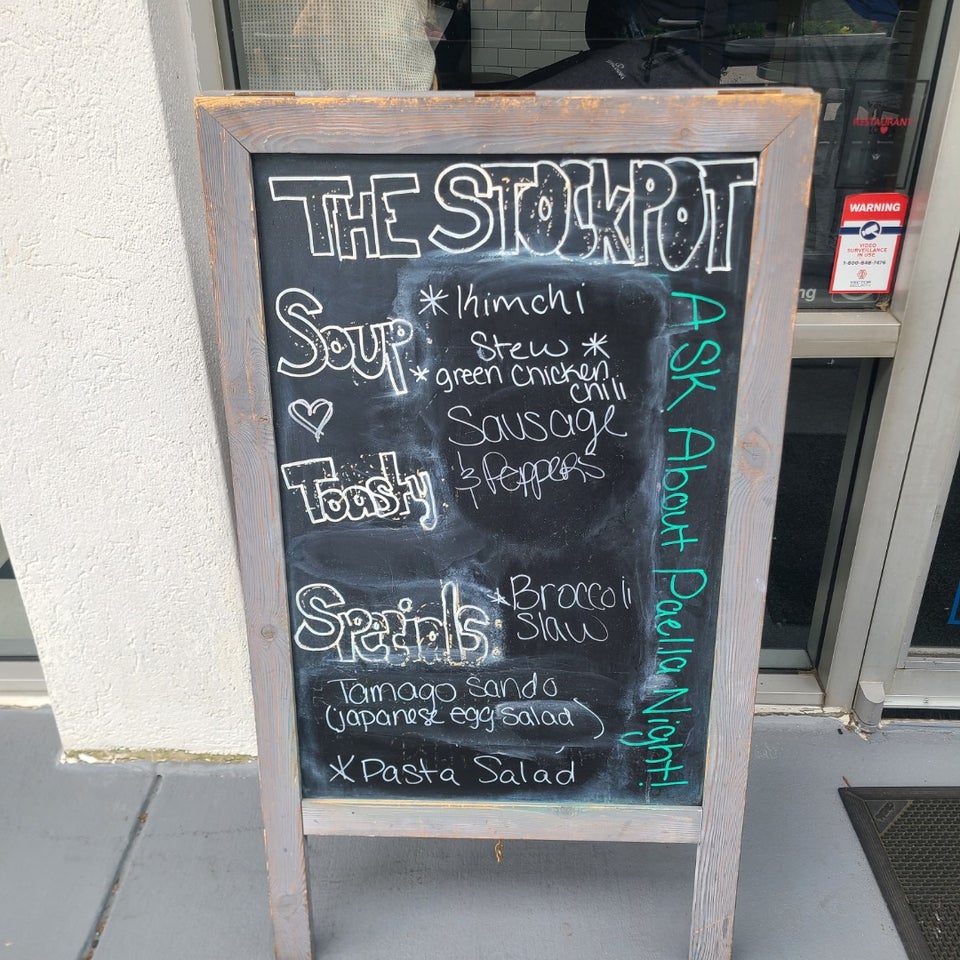 THE STOCKPOT
Soup
* Kimchi
Stew *
* green chicken
chili
♡
Toasty
Sausage
& Peppers
Specials
* Broccoli
Slaw
Tamago Sando
(japanese egg salad)
* Pasta Salad
Ask About Paella Night!
RESTAURANT
WARNING
VIDEO
SURVEILLANCE
IN USE
1-800-848-7476
VECTOR
SECURITY
ng